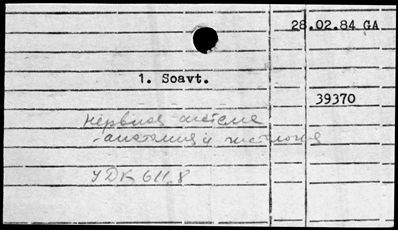 28.02.84 GA
1. Soavt.
39370
нервная система
-анатомия и гистология
УДК 611.8